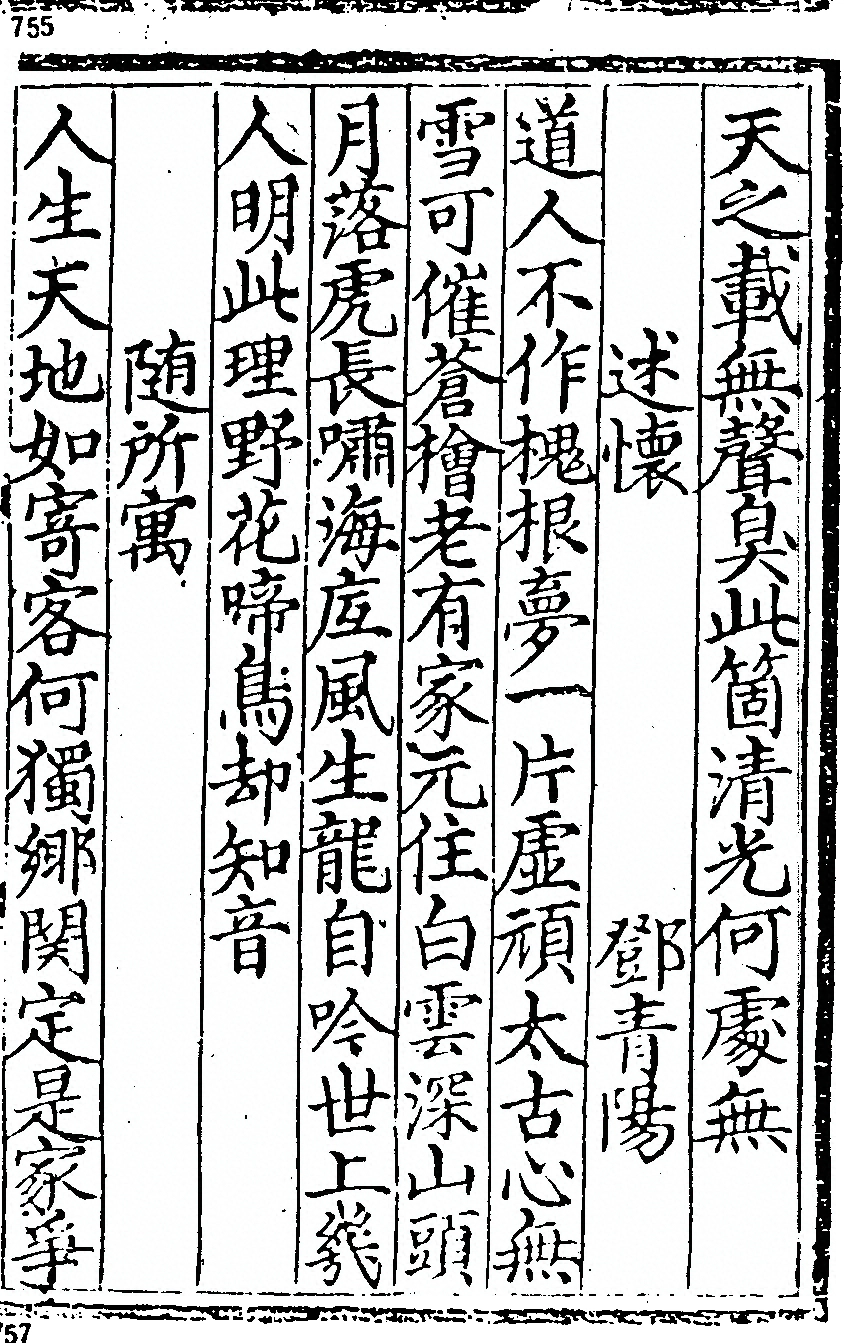 755
天之載無聲臭此箇清光何處無
述懷 鄧青陽
道人不作槐根夢一片虛頑太古心無
雪可催蒼檜老有家元住白雲深山頭
月落虎長嘯海底風生龍自吟世上幾
人明此理野花啼鳥却知音
随所寓
人生天地如寄客何獨鄉関定是家爭
757